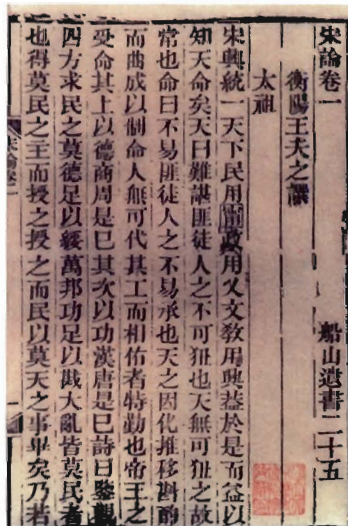 宋論卷一　船山遺書二十五
衡陽王夫之譔
太祖
宋興統一天下民用甯政用乂文敎用興蓋於是而益以
知天命矣天曰難諶匪徒人之不可狃也天無可狃之故
常也命曰不易匪徒人之不易承也天之因化推移斟酌
而曲成以制命人無可代其工而相佑者特勤也帝王之
受命其上以德商周是已其次以功漢唐是已詩曰鑒觀
四方求民之莫德足以綏萬邦功足以戡大亂皆莫民者
也得莫民之主而授之授之而民以莫天之事畢矣乃若
宋論卷一